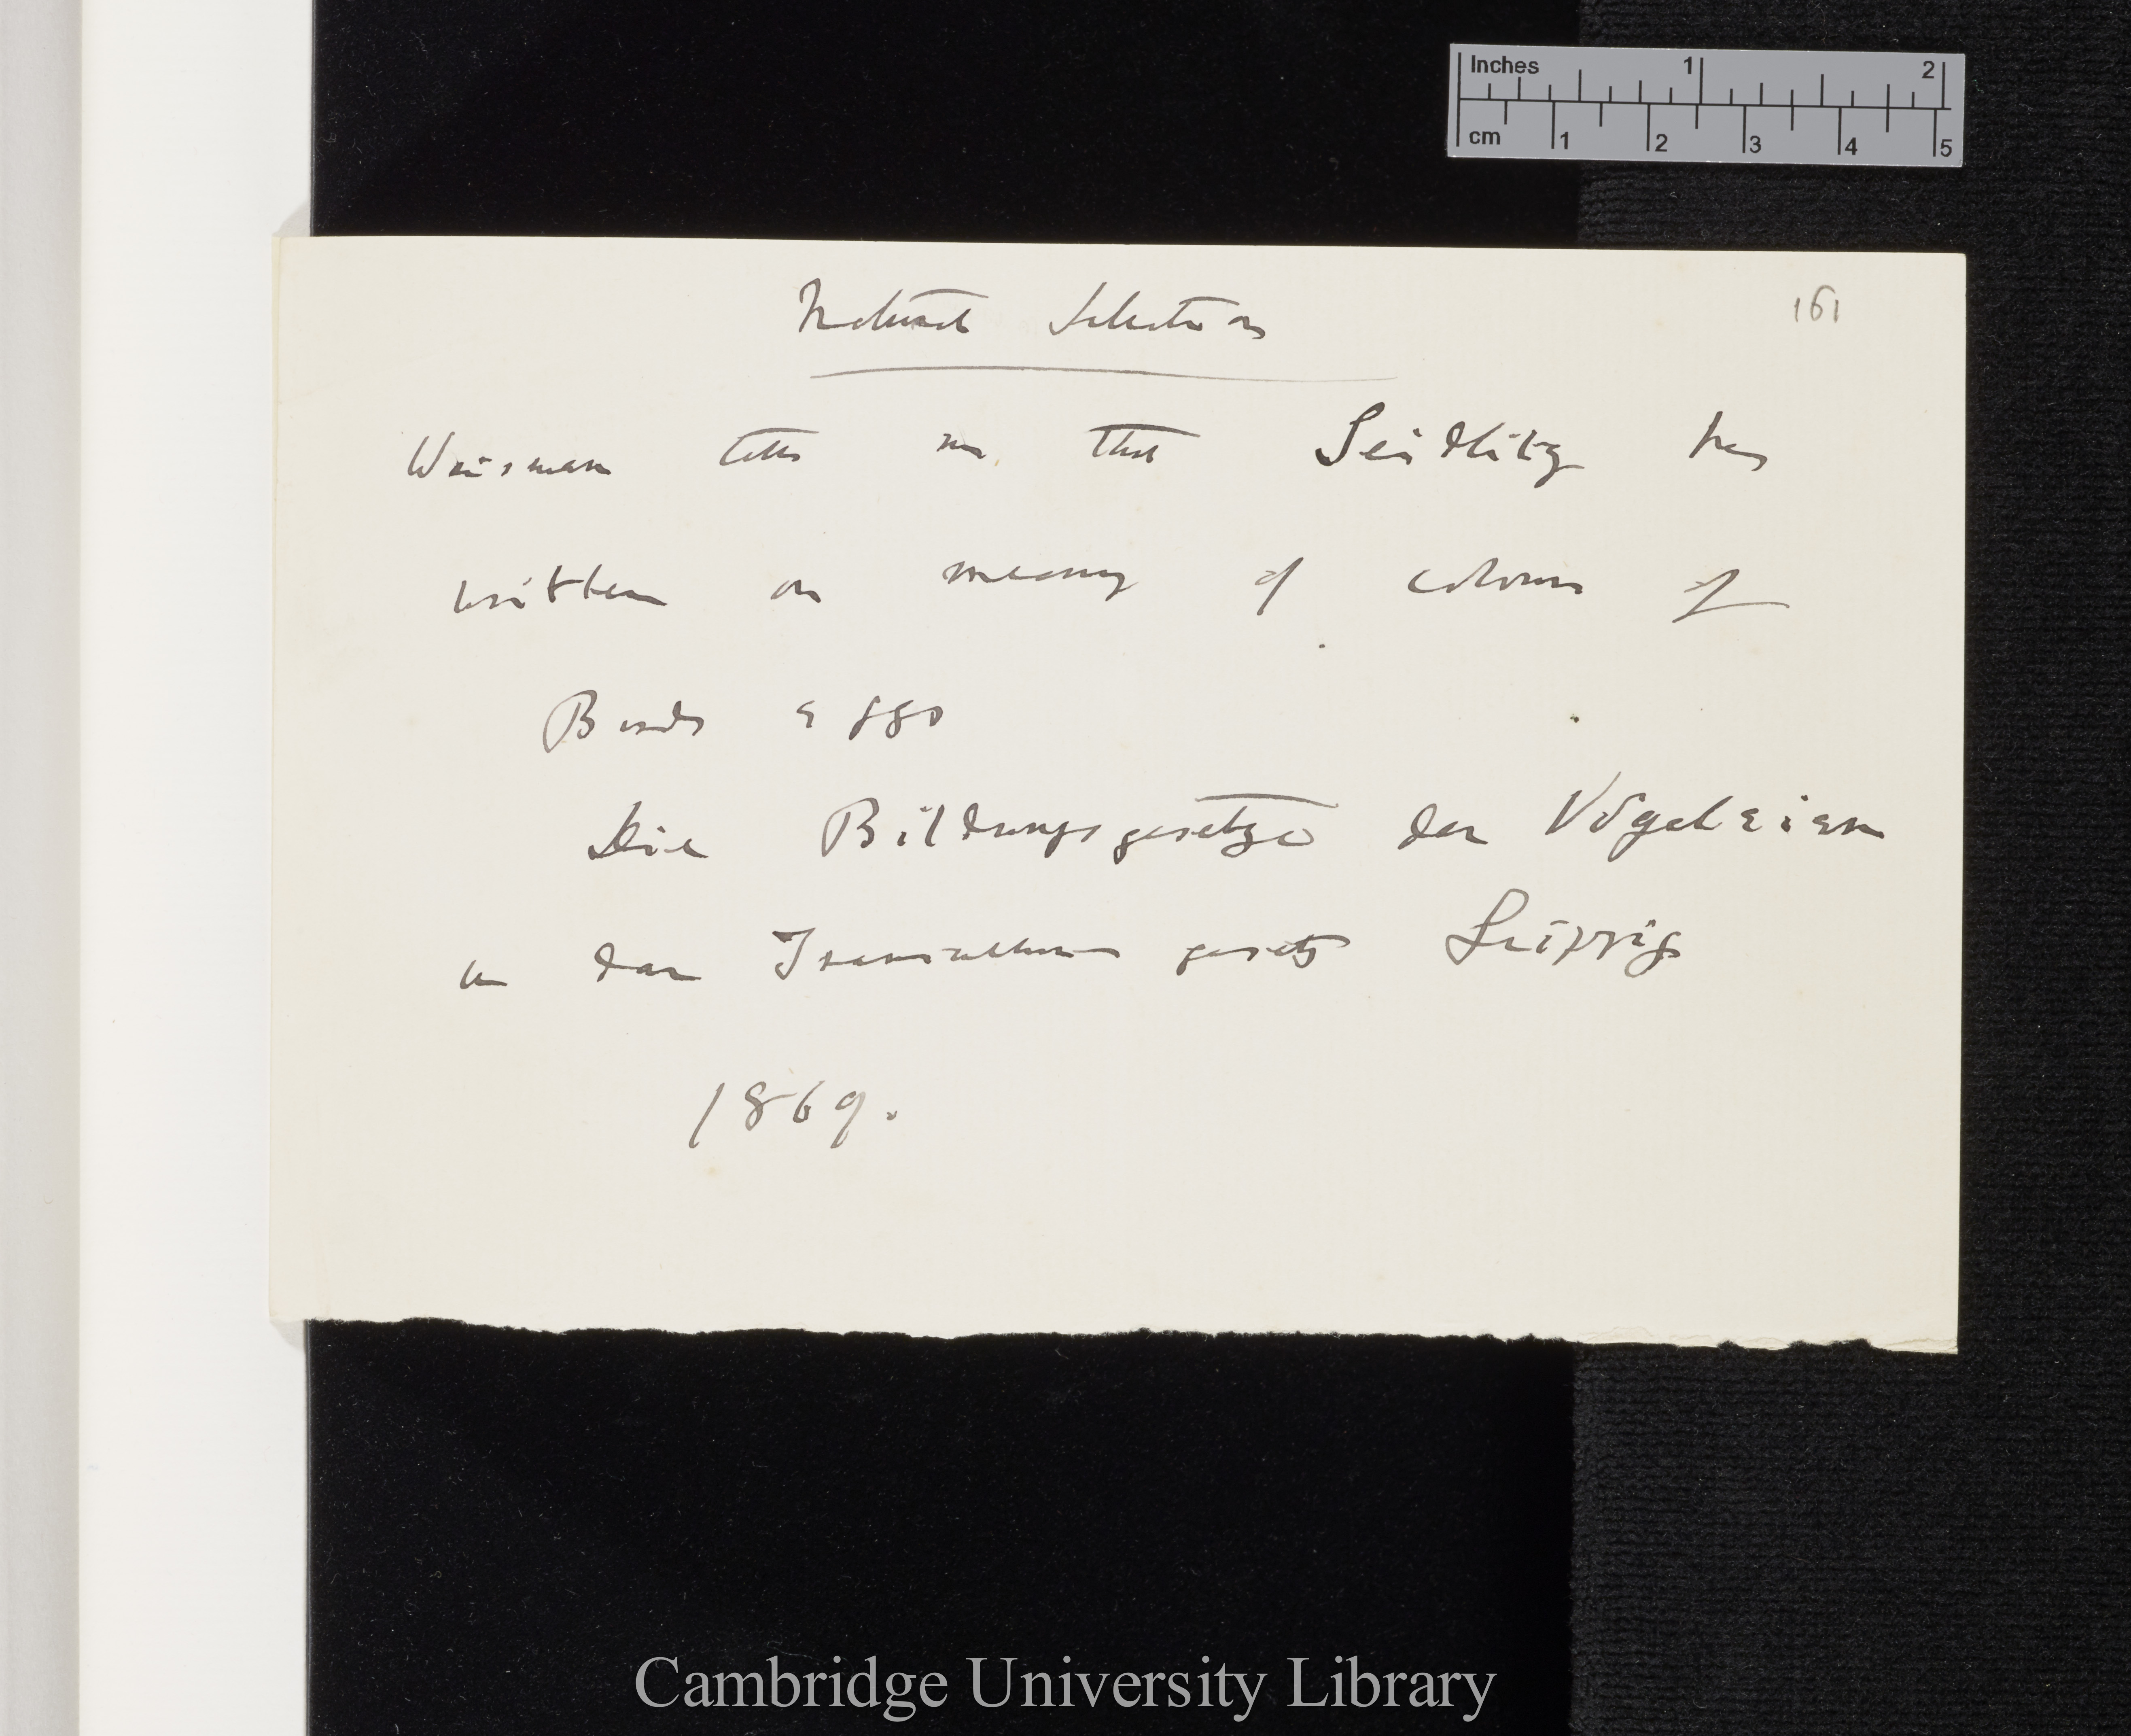 Inches 1 2
cm 1 2 3 4 5
161
Natural Selection
Weisman tells me that Seidlitz has
written on meaning of colours of
Birds eggs
Die Bildungsgesetze der Vögeleier
in der gesetz Leipzig
1869.
Cambridge University Library